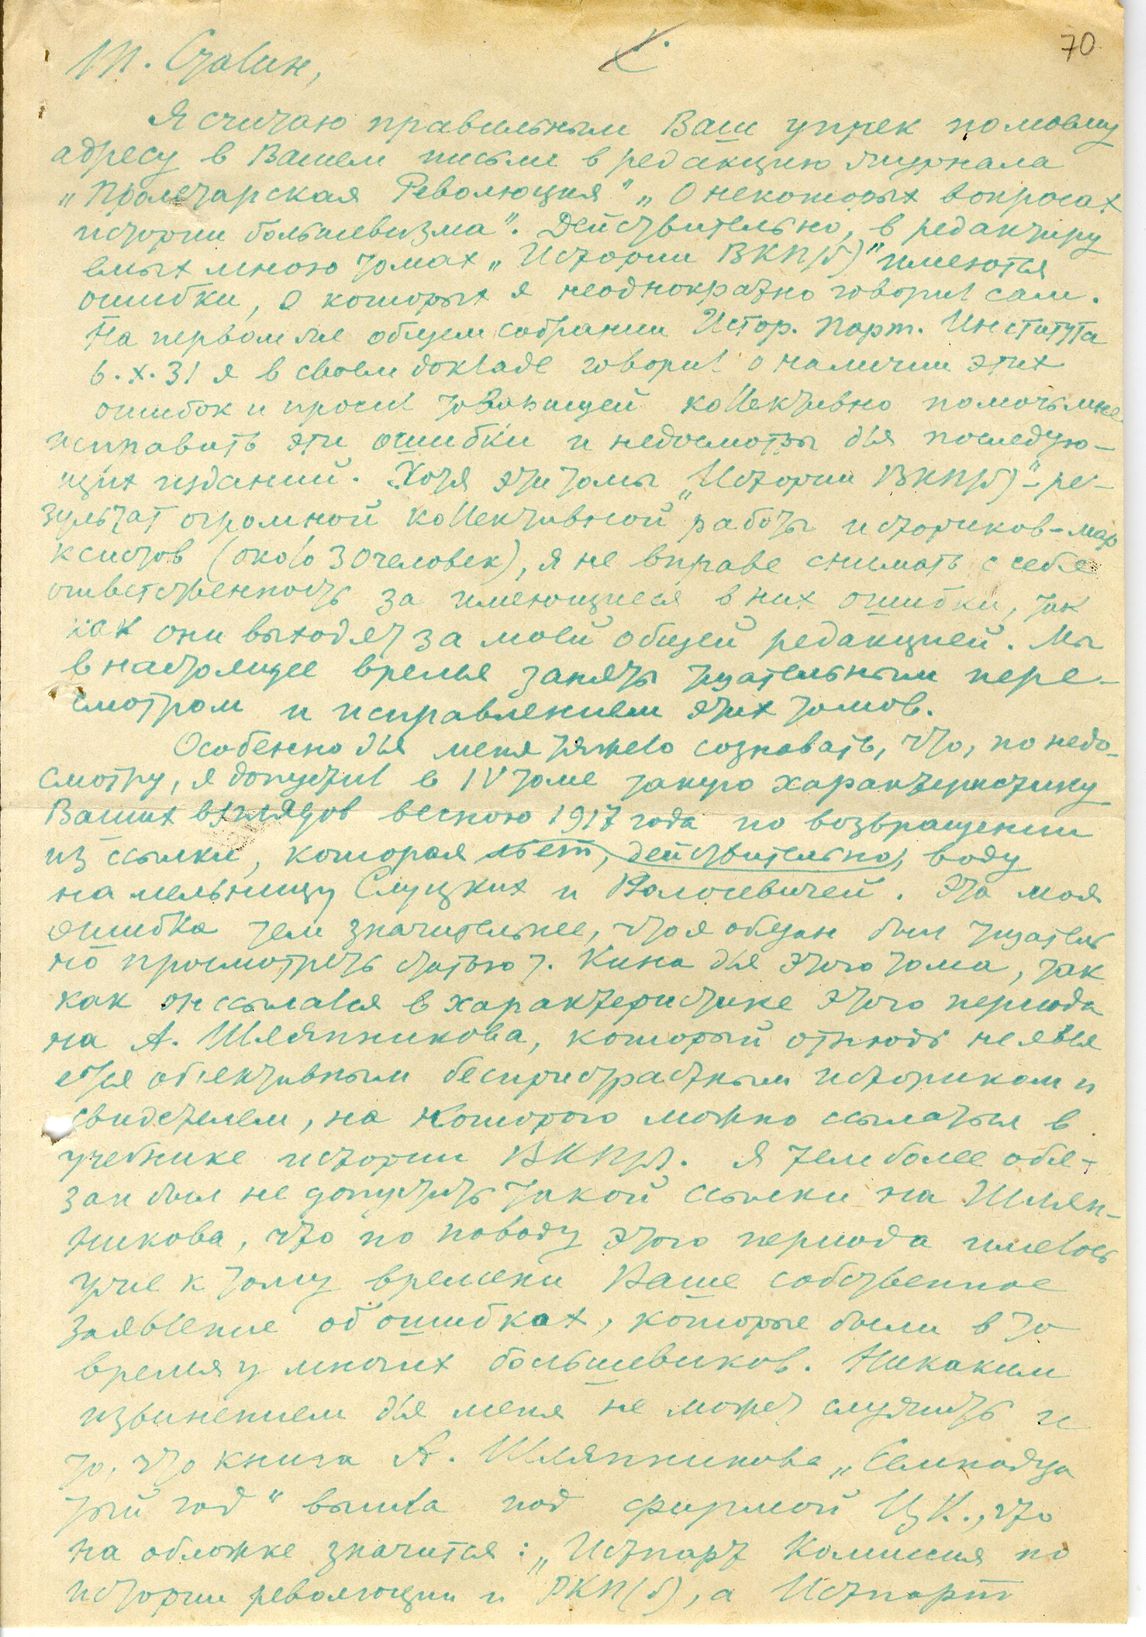 70
Т. Сталин,
Я считаю правильным Ваш упрек по моему
адресу в Вашем письме в редакцию журнала
„Пролетарская Революция" „О некоторых вопросах
истории большевизма". Действительно, в редактиру
емых мною томах „Истории ВКП(б)" имеются
ошибки, о которых я неоднократно говорил сам.
На первом же общем собрании Истор. Парт. Института
6.X.31 я в своем докладе говорил о наличии этих
ошибок и просил товарищей коллективно помочь мне
исправить эти ошибки и недосмотры для последую-
щих изданий. Хотя эти томы „Истории ВКП(б)" - ре-
зультат огромной коллективной работы историков-мар
ксистов (около 30 человек), я не вправе снимать с себя
ответственность за имеющиеся в них ошибки, так
как они выходят за моей общей редакцией. Мы
в настоящее время заняты тщательным пере-
смотром и исправлением этих томов.
Особенно для меня тяжело сознавать, что, по недо-
смотру, я допустил в IV томе такую характеристику
Ваших взглядов весною 1917 года по возвращении
из ссылки, которая льет, действительно, воду
на мельницу Слуцких и Волосевичей. Эта моя
ошибка тем значительнее, что я обязан был тщатель
но просмотреть статью т. Кина для этого тома, так
как он ссылался в характеристике этого периода
на А. Шляпникова, который отнюдь не явля
ется об'ективным беспристрастным историком и
свидетелем, на которого можно ссылаться в
учебнике истории ВКП(б). Я тем более обя-
зан был не допустить такой ссылки на Шляп-
никова, что по поводу этого периода имелось
уже к тому времени Ваше собственное
заявление об ошибках, которые были в то
время у многих большевиков. Никаким
извинением для меня не может служить и
то, что книга А. Шляпникова „Семнадца
тый год" вышла под фирмой ЦК., что
на обложке значится: „Истпарт Комиссия по
истории революции и РКП(б), а Истпарт